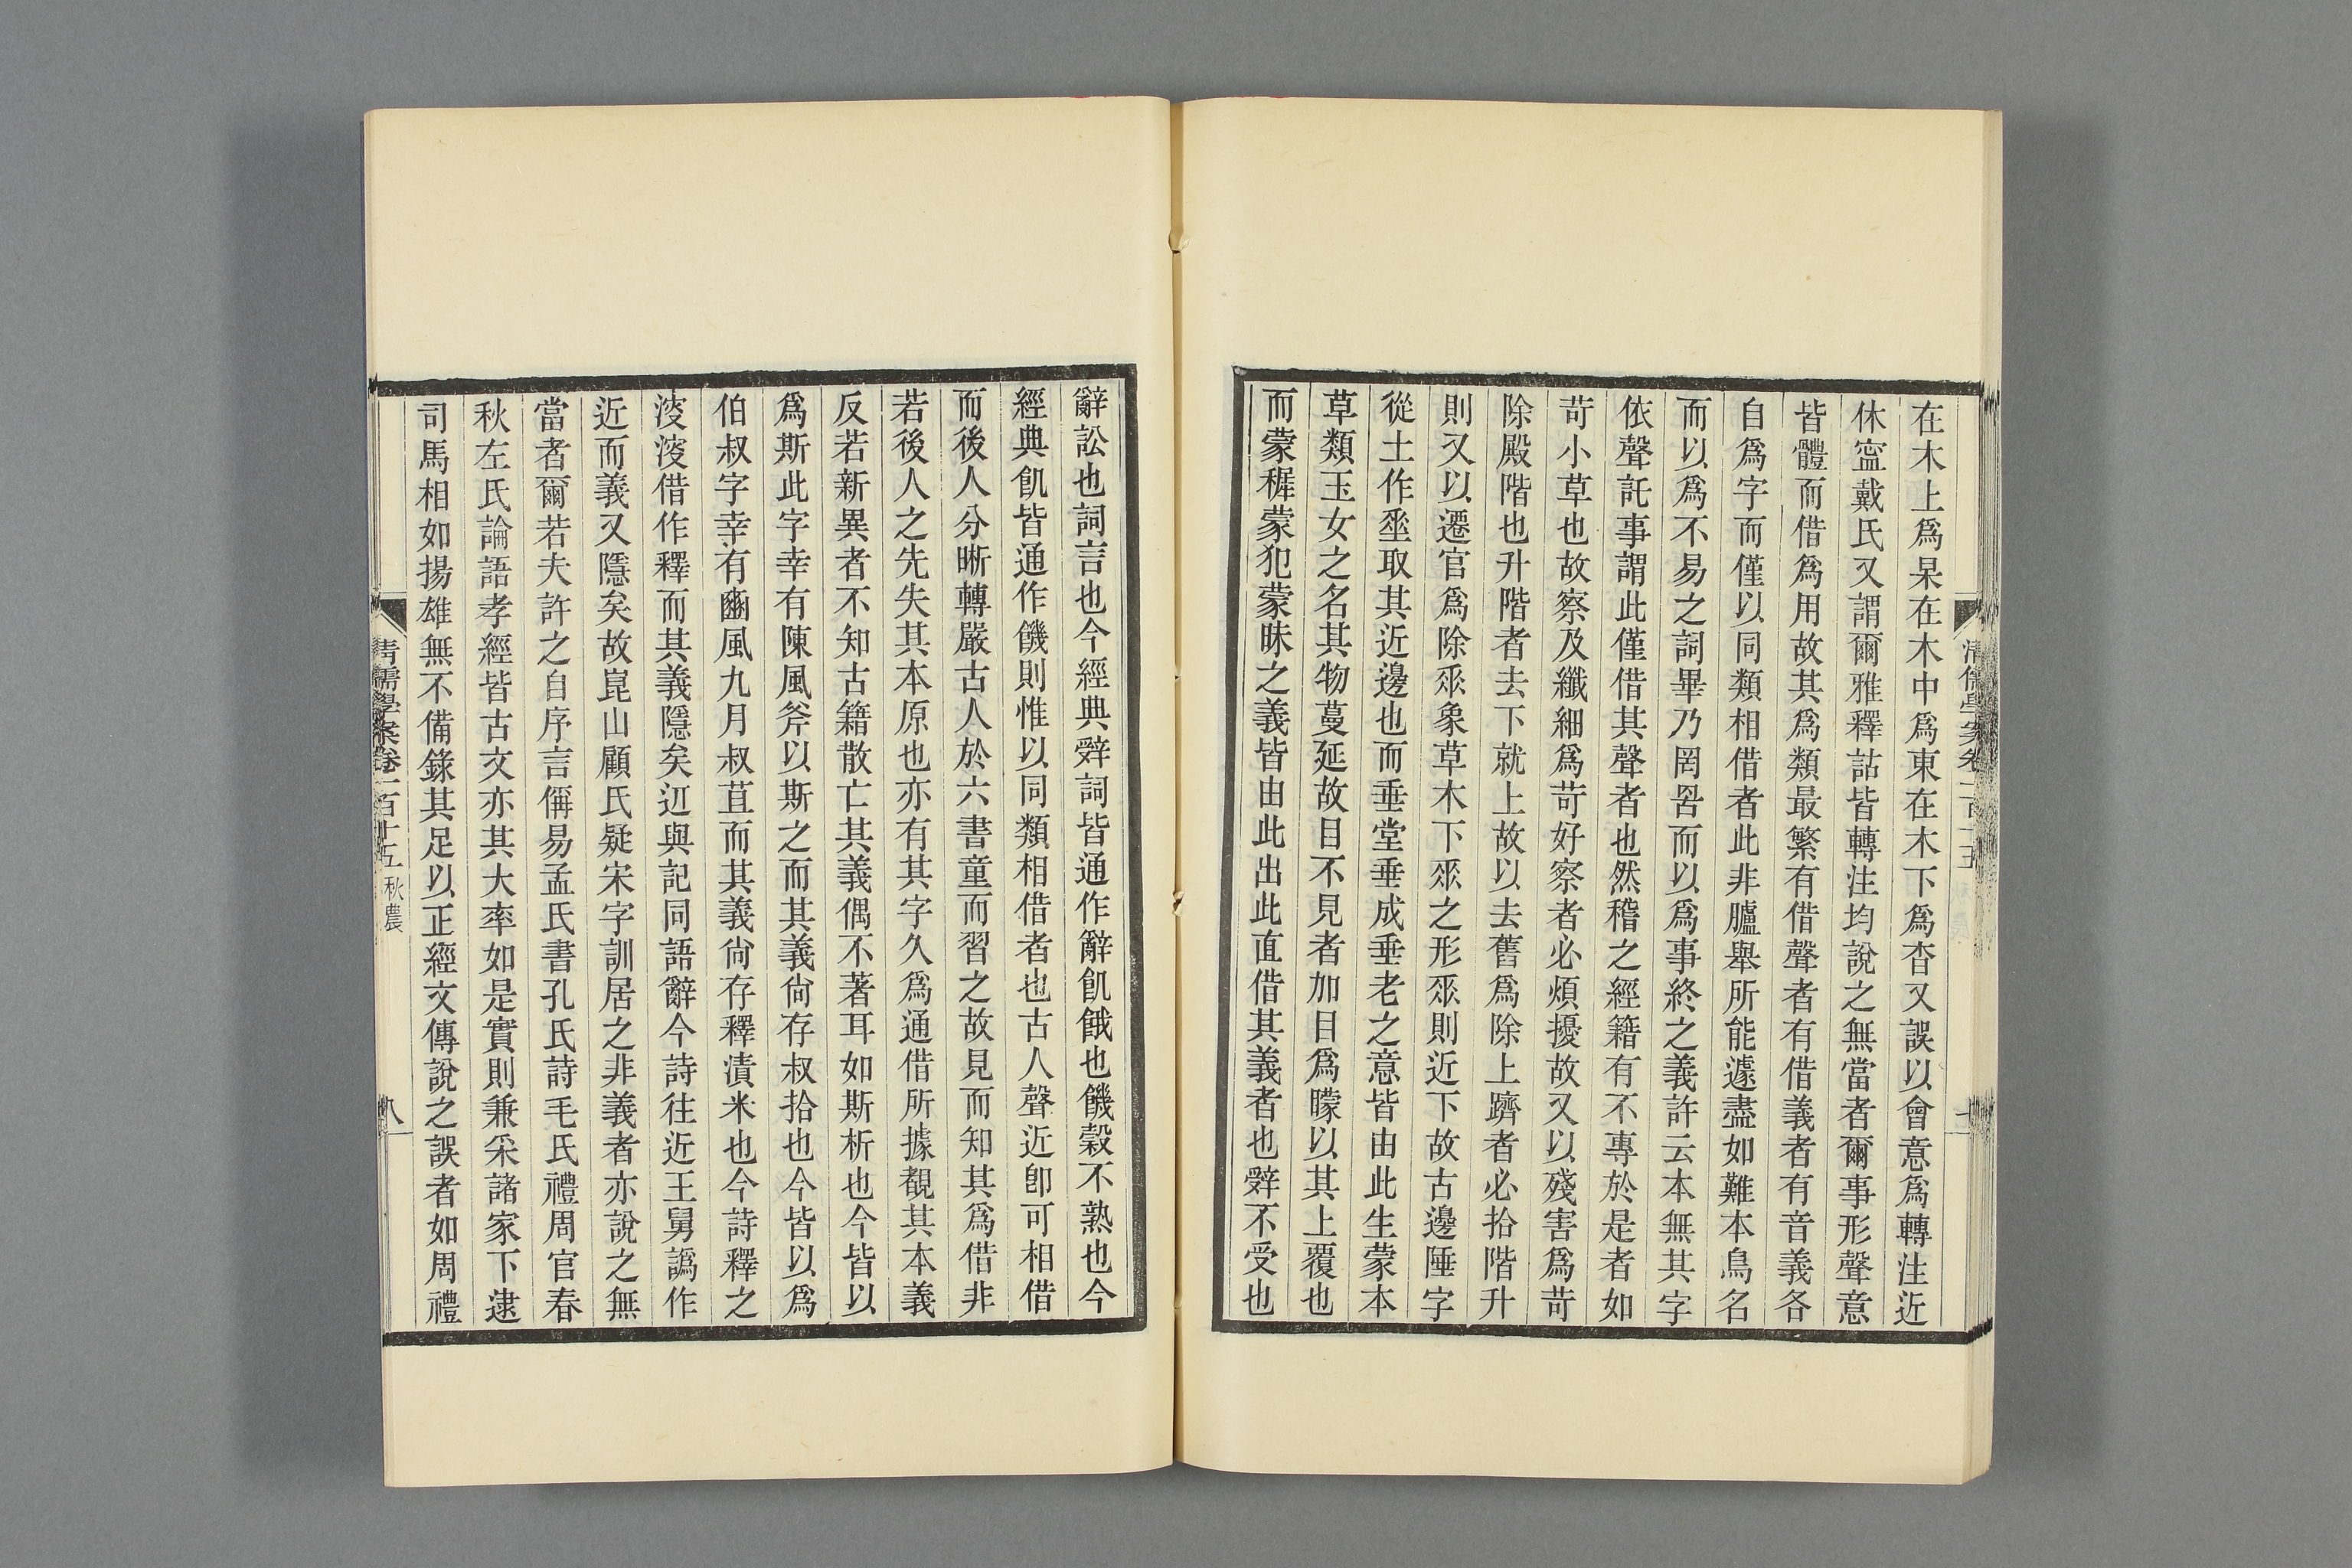 在木上爲杲在木中爲東在木下爲杳又誤以會意爲轉注近
休寍戴氏又謂爾雅釋詁皆轉注均說之無當者爾事形聲意
皆體而借爲用故其爲類最繁有借聲者有借義者有音義各
自爲字而僅以同類相借者此非臚舉所能遽盡如難本鳥名
而以爲不易之詞畢乃罔罟而以爲事終之義許云本無其字
依聲託事謂此僅借其聲者也然稽之經籍有不專於是者如
苛小草也故察及纖細爲苛好察者必煩擾故又以殘害爲苛
除殿階也升階者去下就上故以去舊爲除上躋者必拾階升
則又以遷官爲除𠂹象草木下𠂹之形𠂹則近下故古邊陲字
從土作垂取其近邊也而垂堂垂成垂老之意皆由此生蒙本
草類玉女之名其物蔓延故目不見者加目爲矇以其上覆也
而蒙穉蒙犯蒙昧之義皆由此出此直借其義者也辤不受也
辭訟也詞言也今經典辤詞皆通作辭飢餓也饑穀不熟也今
經典飢皆通作饑則惟以同類相借者也古人聲近卽可相借
而後人分晰轉嚴古人於六書童而習之故見而知其爲借非
若後人之先失其本原也亦有其字久爲通借所據觀其本義
反若新異者不知古籍散亡其義偶不著耳如斯析也今皆以
爲斯此字幸有陳風斧以斯之而其義尙存叔拾也今皆以爲
伯叔字幸有豳風九月叔苴而其義尙存釋漬米也今詩釋之
淩淩借作釋而其義隱矣䢋與記同語辭今詩往近王舅譌作
近而義又隱矣故崑山顧氏疑宋字訓居之非義者亦說之無
當者爾若夫許之自序言偁易孟氏書孔氏詩毛氏禮周官春
秋左氏論語孝經皆古文亦其大率如是實則兼采諸家下逮
司馬相如揚雄無不備錄其足以正經文傳說之誤者如周禮
清儒學案卷一百十五 秋農
八